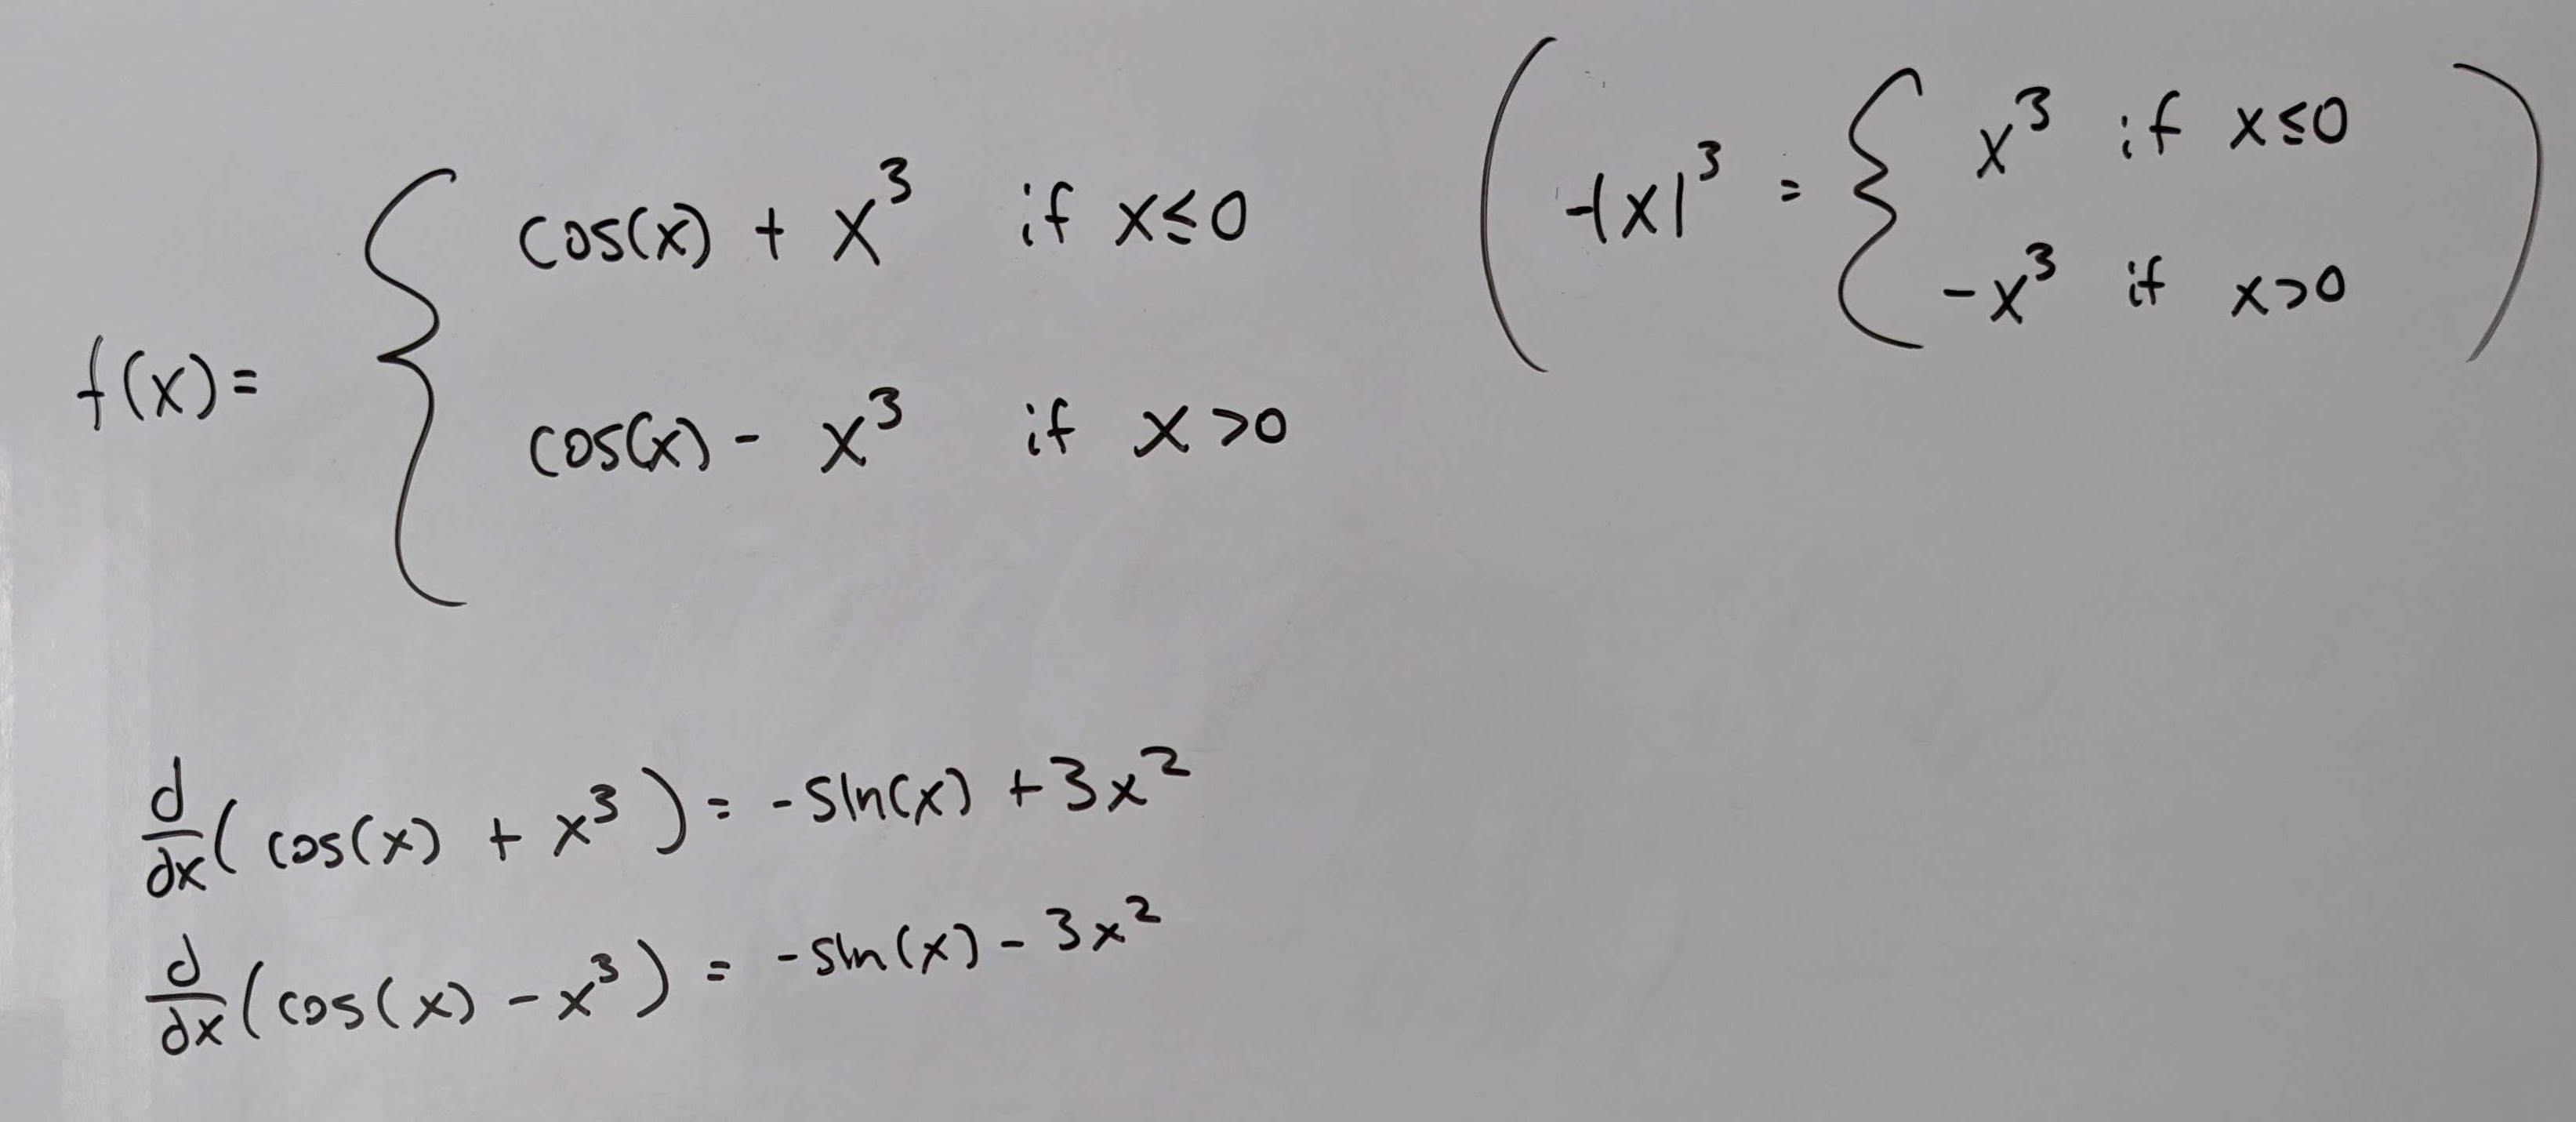 f(x) = { cos(x) + x³ if x≤0
cos(x) - x³ if x>0
( -|x|³ = { x³ if x≤0
-x³ if x>0 )
d/dx ( cos(x) + x³ ) = -sin(x) + 3x²
d/dx ( cos(x) - x³ ) = -sin(x) - 3x²